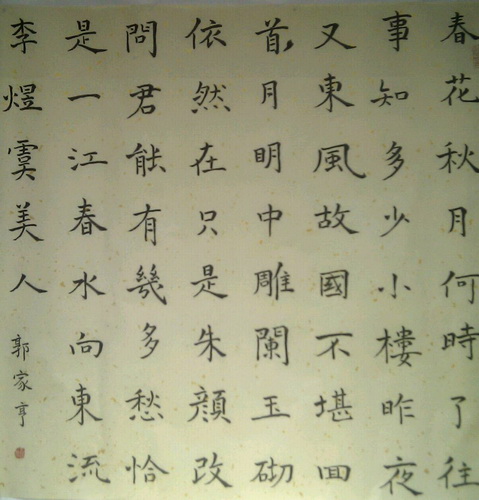 春花秋月何時了往
事知多少小樓昨夜
又東風故國不堪回
首月明中雕闌玉砌
依然在只是朱顔改
問君能有幾多愁恰
是一江春水向東流
李煜虞美人 郭家亨